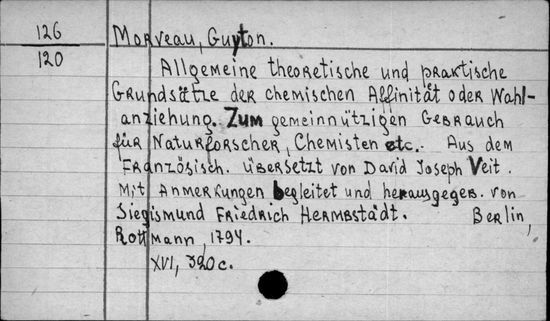 126
120
Morveau, Guyton.
Allgemeine theoretische und praktische
Grundsätze der chemischen Affinität oder Wahl-
anziehung. Zum gemeinnützigen Gebrauch
für Naturforscher, Chemisten etc. Aus dem
Französisch. übersetzt von David Joseph Veit.
Mit Anmerkungen begleitet und herausgegeb. von
Siegismund Friedrich Hermbstädt. Berlin,
Rottmann, 1794.
XVI, 320 c.